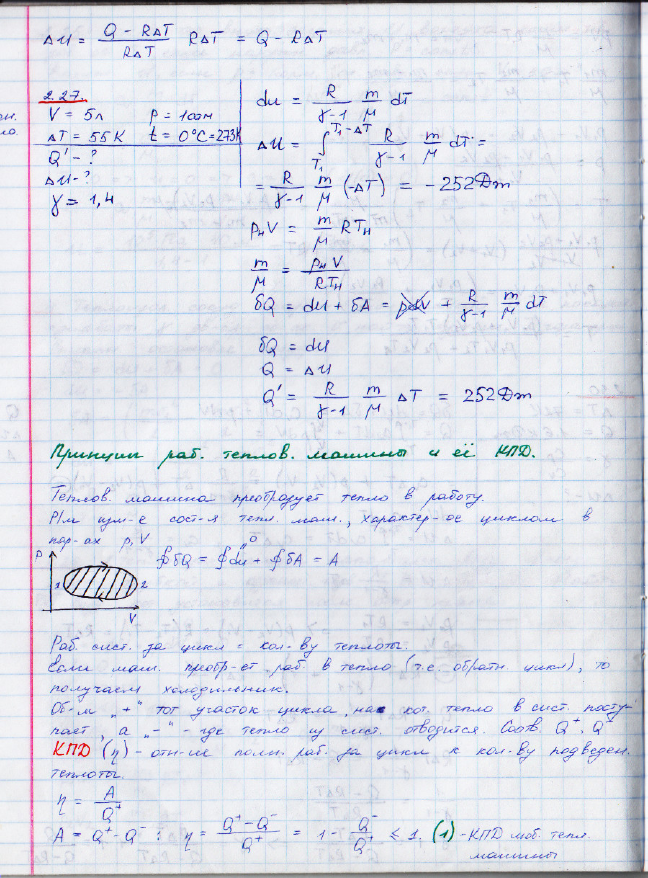 Δu = (Q - RΔT)/(RΔT) RΔT = Q - RΔT
2.27.
V = 5л p = 1 атм
ΔT = 55 K t = 0°C = 273K
Q' - ?
Δu - ?
γ = 1,4
du = R/(γ-1) m/μ dT
Δu = ∫_{T₁}^{T₁-ΔT} R/(γ-1) m/μ dT =
= R/(γ-1) m/μ (-ΔT) = -252Дж
pнV = m/μ RTн
m/μ = pнV/RTн
δQ = du + δA = pdV + R/(γ-1) m/μ dT
δQ = du
Q = Δu
Q' = R/(γ-1) m/μ ΔT = 252Дж
Принцип раб. теплов. машины и её КПД.
Теплов. машина преобразует тепло в работу.
Р/м изм-е сост-я тепл. маш., характер-ое циклом в
пар-ах p, V
p 1 2 V
∮δQ = ∮du + ∮δA = A
0
Раб. сист. за цикл = кол-ву теплоты.
Если маш. преобр-ет раб. в тепло (т.е. обратн. цикл), то
получаем холодильник.
Об-м „+" тот участок цикла, на кот. тепло в сист. посту-
пает, а „-" - где тепло из сист. отводится. Соотв. Q⁺, Q⁻
КПД (η) - отн-ие полн. раб. за цикл к кол-ву подведен.
теплоты.
η = A/Q⁺
A = Q⁺ - Q⁻ : η = (Q⁺ - Q⁻)/Q⁺ = 1 - Q⁻/Q⁺ ≤ 1. (1) - КПД люб. тепл.
машины